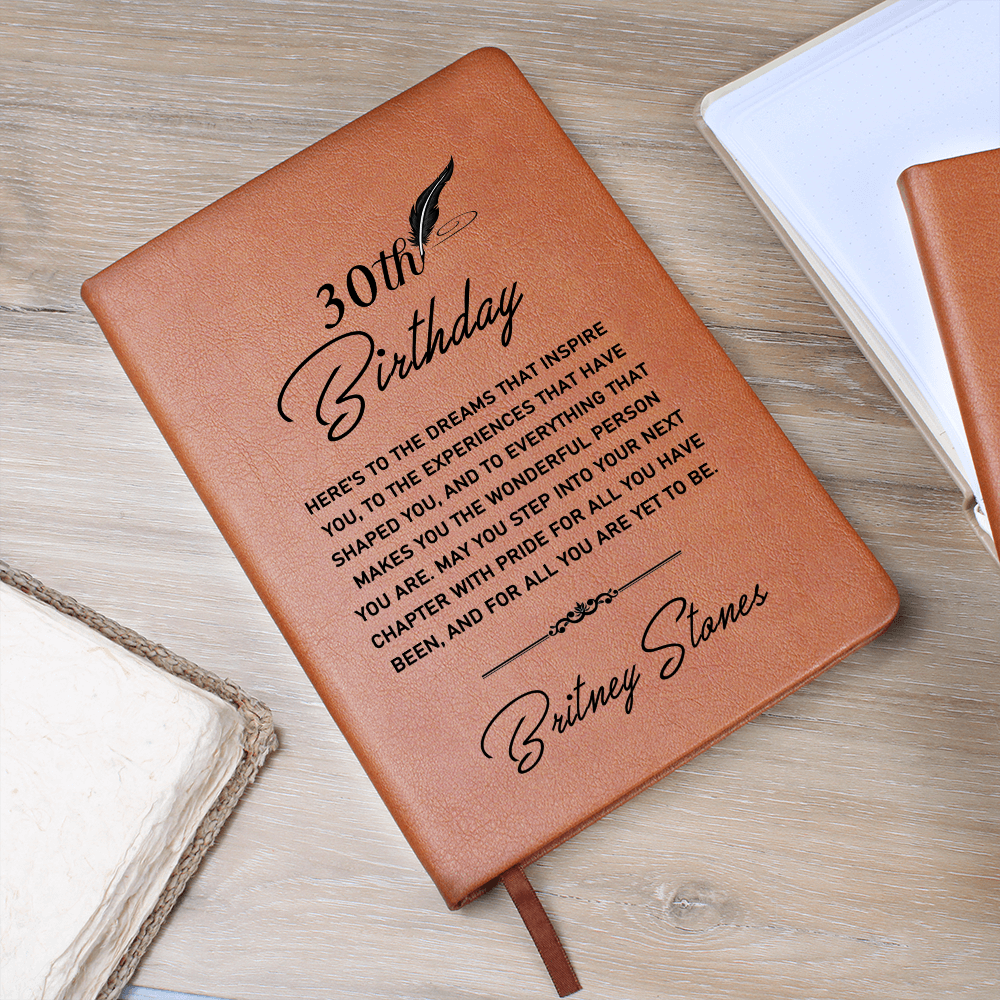 30th
Birthday
HERE'S TO THE DREAMS THAT INSPIRE
YOU, TO THE EXPERIENCES THAT HAVE
SHAPED YOU, AND TO EVERYTHING THAT
MAKES YOU THE WONDERFUL PERSON
YOU ARE. MAY YOU STEP INTO YOUR NEXT
CHAPTER WITH PRIDE FOR ALL YOU HAVE
BEEN, AND FOR ALL YOU ARE YET TO BE.
Britney Stones